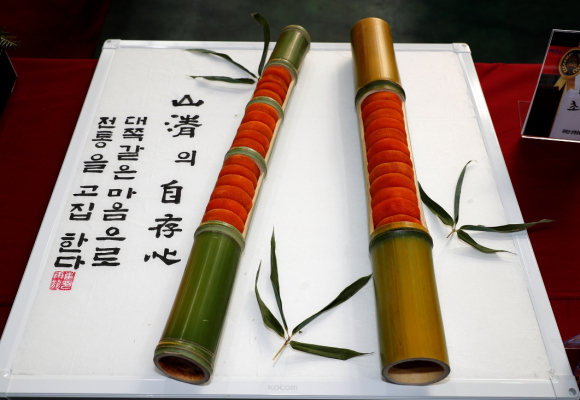 山清의 自存心
대쪽같은 마음으로
전통을 고집한다